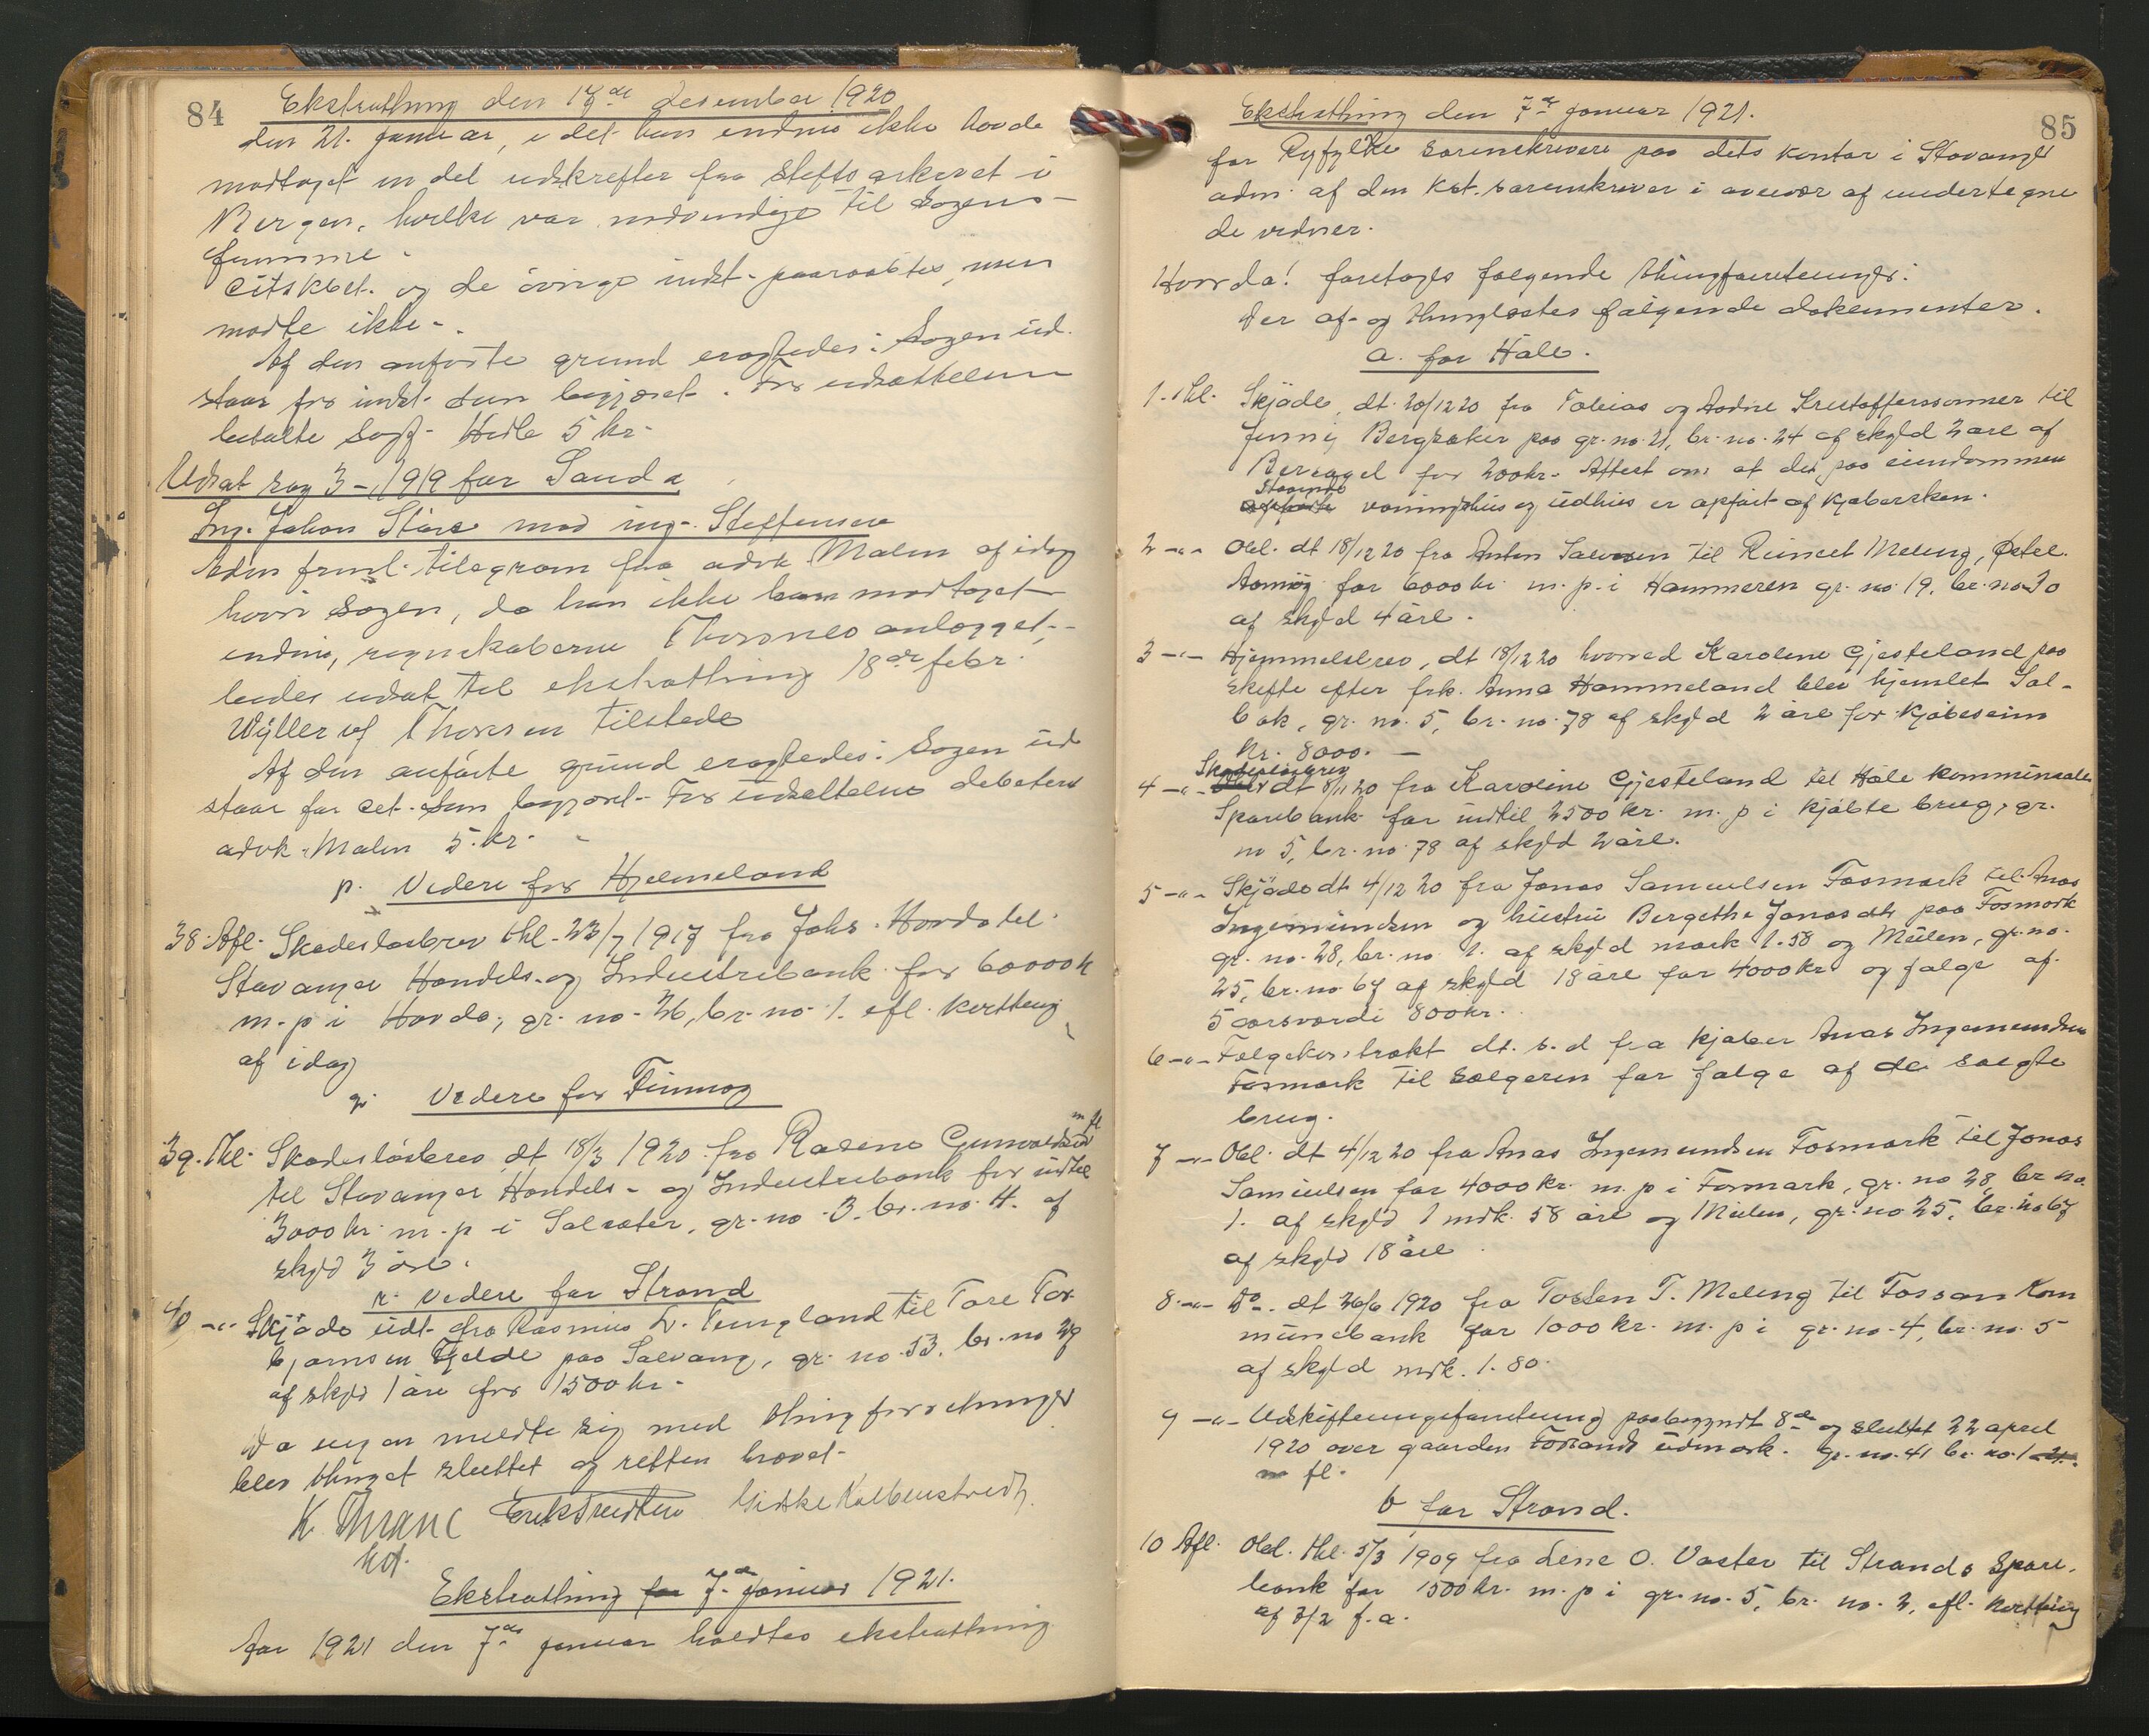 84
Ekstrathing den 17de desember 1920
den 21. januar, idet han endnu ikke havde
modtaget en del udskrefter fra stiftsarkivet i
Bergen, hvilke var nødvendige til sagens
fremme.
Citskbel. og de övrige indst. paaraabtes, men
mødte ikke.
Af den anførte grund eragtedes: Sagen ud-
staar for indst. som begjæret. For udsættelsen
betalte sagf. Helle 5 kr.
Udsat sag 3-1919 for Sauda
Ing. Johan Störe mod ing. Steffensen
telegram fra advk. Malm af idag
hvori sagen, da han ikke har modtaget
endnu, regnskaberne Thorsnes anlægget,
bedes udsat til ekstrathing 18de febr.
Wÿller vf Thorsen tilstede
Af den anførte grund eragtedes: Sagen ud
staar for cit. som begjæret. For udsættelsen debeteres
advk. Malm 5 kr.
p. Videre for Hjelmeland
38. Afl. Skadeslösbrev thl. 23/7 1917 fra Johs. Horda til
Stavanger Handels- og Industribank for 60000 k
m. p i Horda, gr. no. 36, br. no. 1. efl. kvittering
af idag
q. Videre for Finnøg
39. Thl. Skadeslösbrev dt 18/3 1920 fra Rasene Gunvaldsen m fl
til Stavanger Handels- og Industribank for indtil
3000 kr. m. p i Salsæter, gr. no. 3. br. no. 4. af
skyld 3 öre.
r. videre for Strand
40 -"- Skjöde udt. fra Rasmus L. Tungland til Tore Tor
bjørnsen Fjelde paa Solvang, gr. no. 53. br. no 27
af skyld 1 öre for 1500 kr.
Da ingen meldte sig med thingforretninger
blev thinget sluttet og retten hævet.
K. Thrane
kst.
Ekstrathing for 7de januar 1921.
Aar 1921 den 7de januar holdtes ekstrathing
85
Ekstrathing den 7de januar 1921.
for Ryfylke sorenskriveri paa dets kontor i Stavanger
adm. af den kst. sorenskriver i overvær af undertegne
de vidner.
Hvorda! foretoges følgende thingforretninger:
Der af- og thinglæstes følgende dokumenter.
a. for Hale.
1. thl. Skjöde, dt. 20/12 20 fra Tobias og Aadne Kristofferssønner til
Jenny Bergsaker paa gr. no. 21, br. no. 24 af skyld 2 øre af
for 200 kr. Attest om at det paa eiendommen
staaende vaaningshus og udhus er opført af kjøbersken.
2 -"- Obl. dt 18/12 20 fra Anton Salvesen til Reinert Meling, Østre
Aamøg for 6000 kr. m. p. i Hammeren gr. no 19, br. no 30
af skyld 4 öre.
3 -"- Hjemmelsbrev, dt 18/12 20 hvorved Karoline Gjesteland paa
skifte efter frk. Anna Hammeland blev hjemlet Sol-
bak, gr. no. 5, br. no. 78 af skyld 2 öre for kjøbesum
kr. 8000. —
4 -"- Skadeslösbrev dt 8/11 20 fra Karoline Gjesteland til Hole kommunale
Sparebank for indtil 2500 kr. m. p i kjøbte brug, gr.
no 5, br. no. 78 af skyld 2 öre.
5 -"- Skjöde dt 4/12 20 fra Jonas Samuelsen Fosmark til Anas
Ingemundsen og hustru Bergethe Jonasdtr paa Fosmark
gr. no. 28, br. no 1. af skyld mark 1.58 og Meilen, gr. no.
25, br. no 67 af skyld 18 öre for 4000 kr og følge af
5 aarsværdi 800 kr.
6 -"- Følgekontrakt dt. s. d fra kjøber Anas Ingemundsen
Fosmark til sælgeren for følge af de solgte
brug.
7 -"- Obl. dt 4/12 20 fra Anas Ingemundsen Fosmark til Jonas
Samuelsen for 4000 kr. m. p i Fosmark, gr. no 28, br no.
1. af skyld 1 mrk. 58 öre og Meilen, gr. no 25, br. no 67
af skyld 18 öre
8 -"- Do. dt 26/6 1920 fra Torsten T. Meling til Fossan Kom
munebank for 1000 kr. m. p i gr. no. 4, br. no. 5
af skyld mrk. 1.80.
9 -"- Udskiftningsforretning paabegyndt 8de og sluttet 22 april
1920 over gaarden Forsands udmark. gr. no. 41 br. no. 1
m fl.
b for Strand.
10 Afl. Obl. thl. 5/3 1909 fra Lene O. Vaster til Strands Spare-
bank for 1500 kr. m. p i gr. no. 5, br. no. 2, efl. kvittering
af 7/2 f. a.